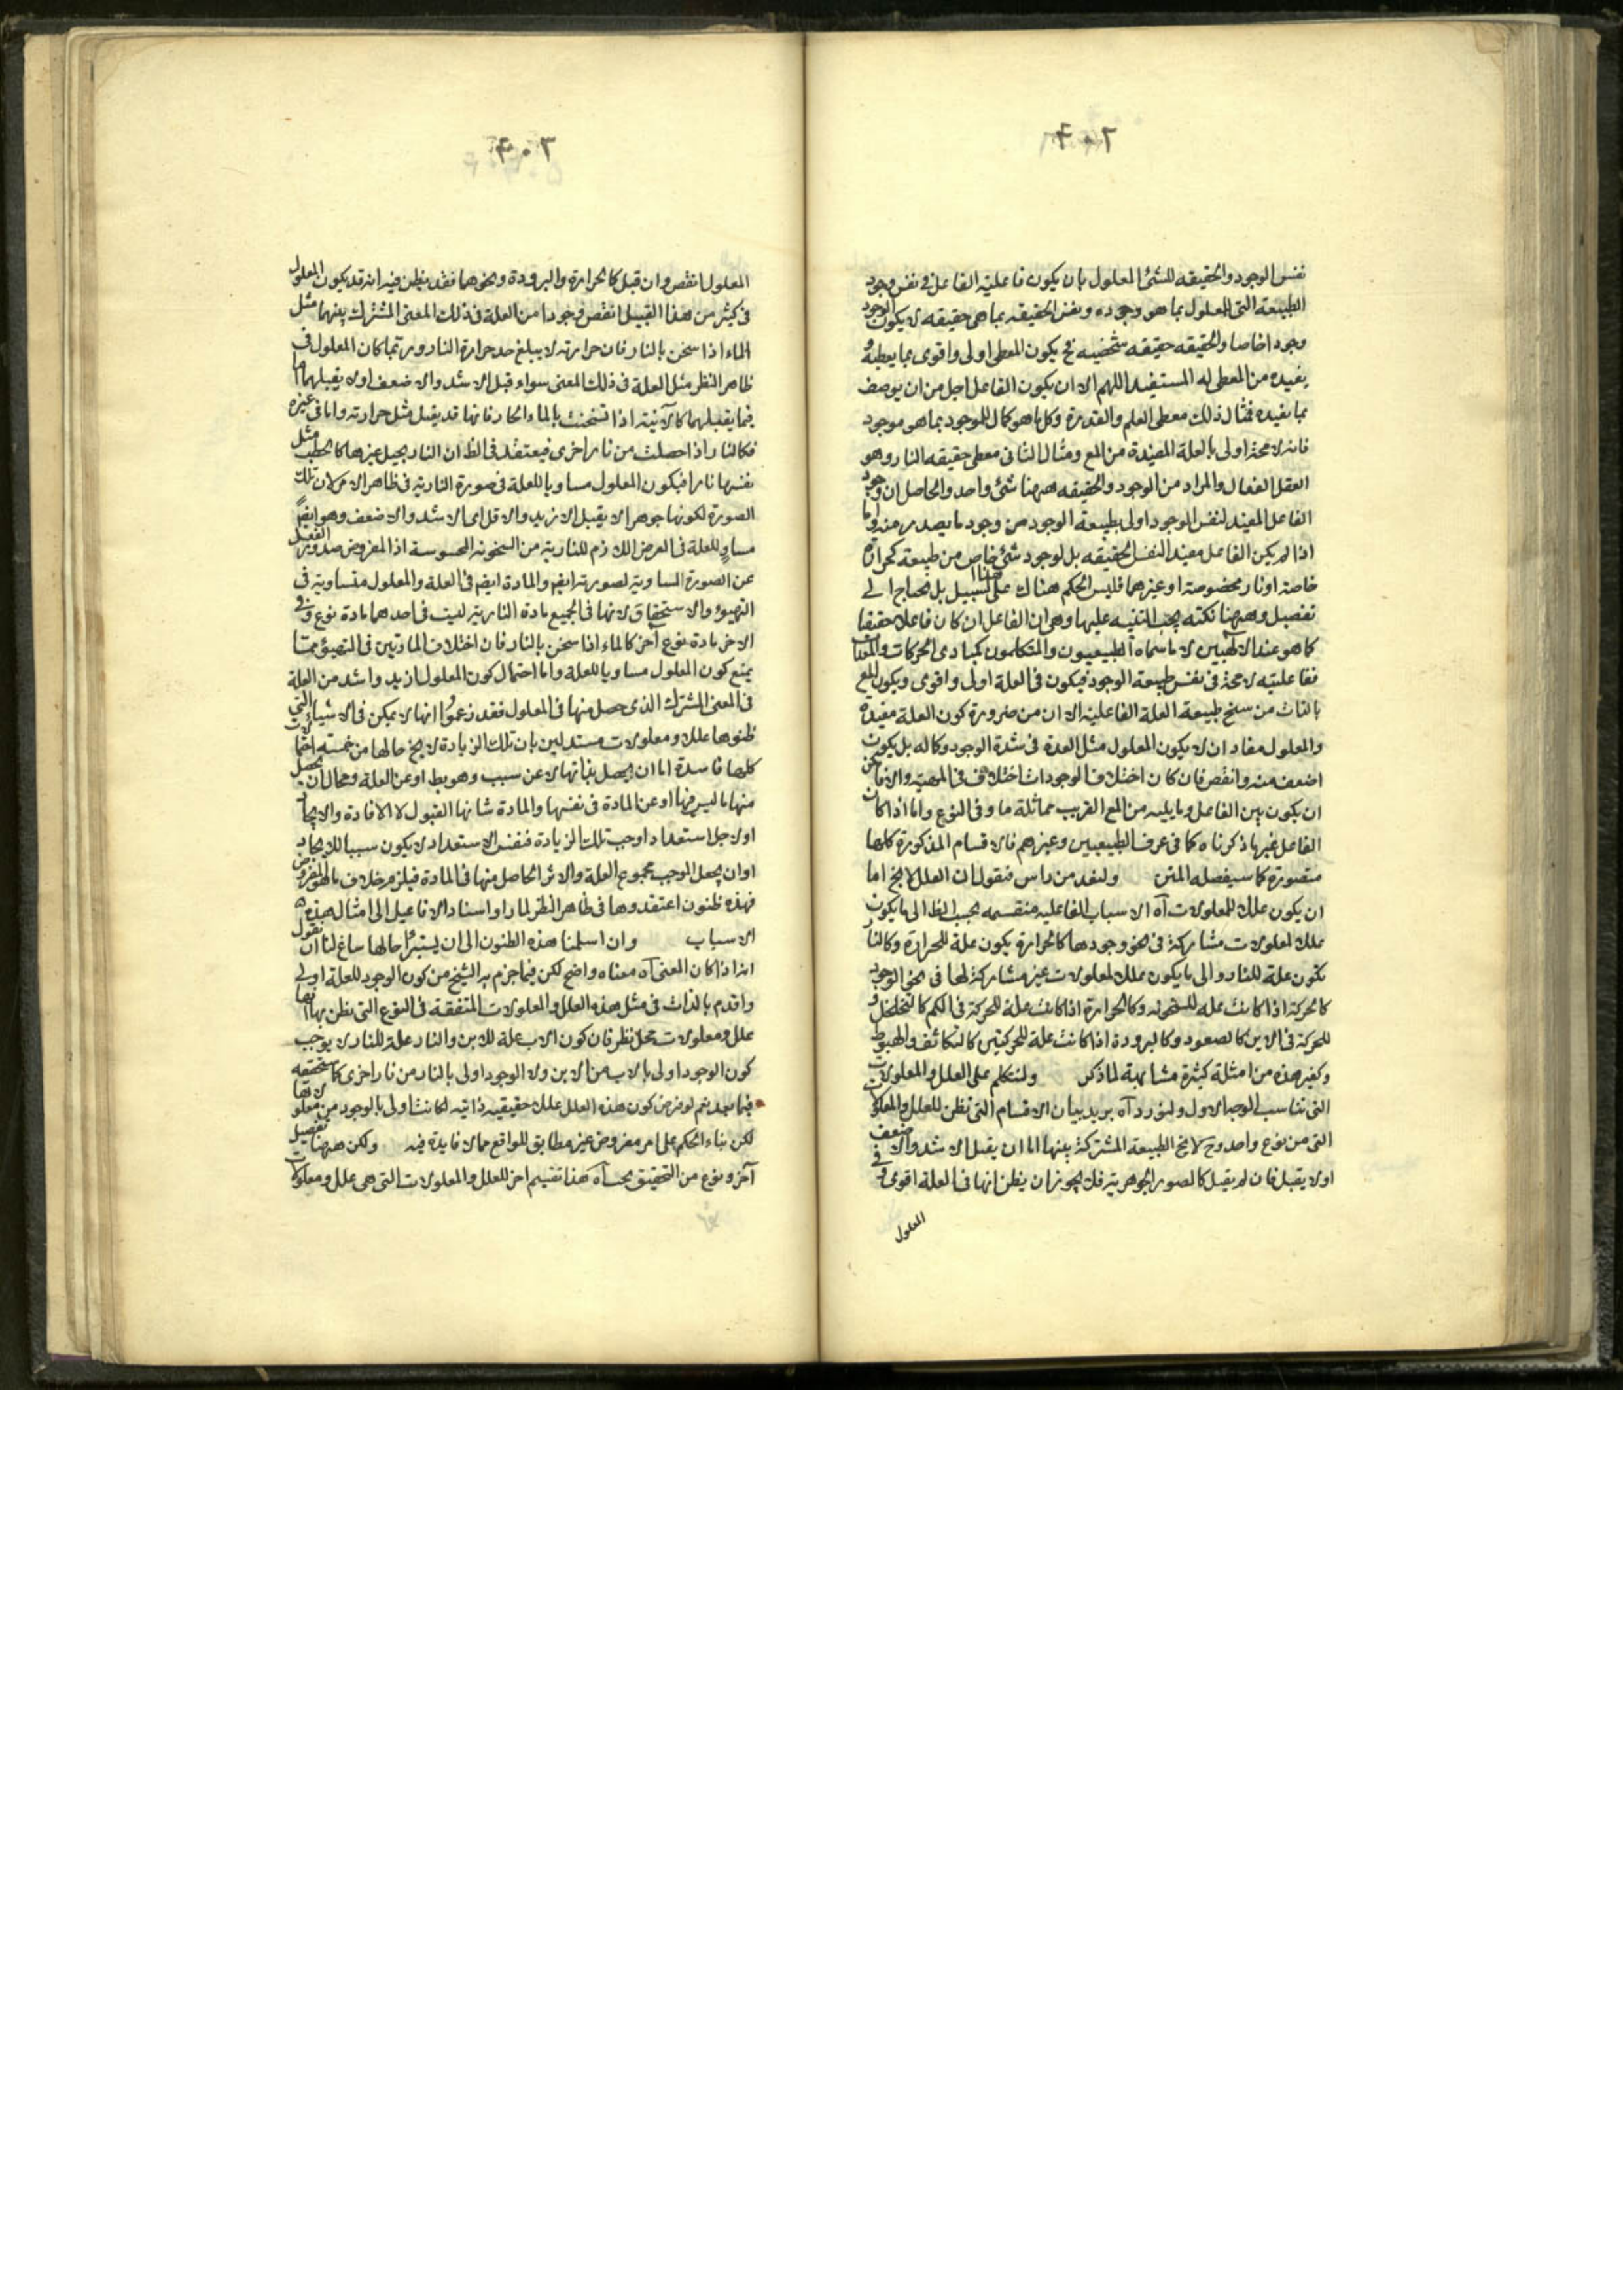 ٤٠٢
نفس الوجود والحقيقه للشئ المعلول بان يكون فاعلية الفاعل في نفس وجود
الطبيعة التى للمعلول بما هو وجوده ونفس الحقيقه بما هى حقيقه لا يكون الوجود
وجودا خاصا والحقيقه حقيقه شخصيه فح يكون المعطى اولى واقوى بما يعطيه و
يفيده من المعطى له المستفيد اللهم الا ان يكون الفاعل اجل من ان يوصف
بما يفيده فمثال ذلك معطى العلم والقدرة وكل ما هو كمال للموجود بما هو موجود
فانه لا محة اولى بالعلة المفيدة من المع ومثال الثانى معطى حقيقه النار وهو
العقل الفعال والمراد من الوجود والحقيقه ههنا شئ واحد والحاصل ان وجود
الفاعل المفيد لنفس الوجود اولى بطبيعة الوجود من وجود ما يصدر منه واما
اذا لم يكن الفاعل مفيد النفس الحقيقه بل لوجود شئ خاص من طبيعة كحرارة
خاصة او نار مخصوصة او غيرهما فليس الحكم هناك على هذا السبيل بل يحتاج الى
تفصيل وههنا نكتة يجب التنبيه عليها وهى ان الفاعل ان كان فاعلا حقيقيا
كما هو عند الالهيين لا ما سماه الطبيعيون والمتكلمون كمبادى الحركات والمعدات
ففاعليته لا محة فى نفس طبيعة الوجود فيكون فى العلة اولى واقوى ويكون المع
بالذات من سنخ طبيعة العلة الفاعلية الا ان من ضرورة كون العلة مفيدة
والمعلول مفادا ان لا يكون المعلول مثل العلة فى شدة الوجود وكماله بل يكون
اضعف منه وانقص فان كان اختلاف الوجودات اختلاف فى المهية والا فلا يمكن
ان يكون بين الفاعل وما يليه من المع القريب مماثلة ما وفى النوع واما اذا كان
الفاعل غير ما ذكرناه كما فى عرف الطبيعيين وغيرهم فالاقسام المذكورة كلها
متصورة كما سيفصله المتن ولنعد من راس فنقول ان العلل لا يخ اما
ان يكون عللا للمعلولات آه الاسباب الفاعليه منقسمه بحسب الظ الى ما يكون
عللا لمعلولات مشاركة فى نحو وجودها كالحرارة يكون علة للحرارة وكالنار
تكون علة للنار والى ما يكون عللا لمعلولات غير مشاركة لها فى نحو الوجود
كالحركة اذا كانت علة للسخونه وكالحرارة اذا كانت علة للحركة فى الكم كالتخلخل و
للحركة فى الاين كالصعود وكالبرودة اذا كانت علة للحركتين كالتكاثف والهبوط
وكغير هذه من امثلة كثيرة مشابهة لما ذكر ولنتكلم على العلل والمعلولات
التى تناسب الوجه الاول ولنورد آه يريد بيان الاقسام التى تظن للعلل والمعلولات
التى من نوع واحد وح لا يخ الطبيعة المشتركة بينها اما ان يقبل الاشد والاضعف
اولا يقبل فان لم يقبل كالصور الجوهرية فلا يجوز ان يظن انها فى العلة اقوى وفى
المعلول
٤٠٣
المعلول انقص وان قبل كالحرارة والبرودة ونحوهما فقد يظن فيه انه قد يكون المعلول
فى كثير من هذا القبيل انقص وجودا من العلة فى ذلك المعنى المشترك بينهما مثل
الماء اذا سخن بالنار فان حرارته لا يبلغ حد حرارة النار وربما كان المعلول فى
ظاهر النظر مثل العلة فى ذلك المعنى سواء قبل الاشد والاضعف اولا يقبلهما اما
فيما يقبلهما كالآنية اذا تسخنت بالماء الحار فانها قد يقبل مثل حرارته واما فى غيره
فكالنار اذا حصلت من نار اخرى فيعتقد فى الظ ان النار يحيل غيرها كالحطب مثل
نفسها نارا فيكون المعلول مساويا للعلة فى صورة النارية فى ظاهر الامر لان تلك
الصورة لكونها جوهرا لا يقبل الازيد والاقل اى الاشد والاضعف وهو ايضا
مساو للعلة فى العرض اللازم للنارية من السخونه المحسوسة اذا المفروض صدور الفعل
عن الصورة المساوية لصورته ايضا والمادة ايضا فى العلة والمعلول متساوية فى
التهيوء والاستحقاق لانها فى الجميع مادة النارية ليست فى احدهما مادة نوع وفى
الاخر مادة نوع آخر كالماء اذا سخن بالنار فان اختلاف المادتين فى التهيؤ مما
يمنع كون المعلول مساويا للعلة واما احتمال كون المعلول ازيد واشد من العلة
فى المعنى المشترك الذى حصل منها فى المعلول فقد زعموا انها لا يمكن فى الاشياء التى
ظنوها عللا ومعلولات مستدلين بان تلك الزيادة لا يخ حالها من خمسة
كلها فاسدة اما ان يحصل بذاتها لا عن سبب وهو بط او عن العلة ومحال ان يحصل
منها ما ليس فيها او عن المادة فى نفسها والمادة شانها القبول لا الافادة والايجاد
اولاجل استعداد اوجب تلك الزيادة فنفس الاستعداد لا يكون سببا للايجاد
اوان يجعل الموجب مجموع العلة والاثر الحاصل منها فى المادة فيلزم خلاف ما هو المفروض
فهذه ظنون اعتقدوها فى ظاهر النظر لما راوا اسناد الافاعيل الى امثال هذه
الاسباب وان اسلمنا هذه الظنون الى ان يستبرأ حالها ساغ لنا ان نقول
انه اذا كان المعنى آه معناه واضح لكن فيما جزم به الشيخ من كون الوجود للعلة اولى
واقدم بالذات فى مثل هذه العلل والمعلولات المتفقة فى النوع التى يظن بها انها
علل ومعلولات محل نظر فان كون الاب علة للابن والنار علة للنار لا يوجب
كون الوجود اولى بالاب من الابن ولا الوجود اولى بالنار من نار اخرى كما ستحققه
فيما بعد نعم لو فرض كون هذه العلل عللا حقيقية ذاتيه لكانت اولى بالوجود من معلولاتها
لكن بناء الحكم على امر مفروض غير مطابق للواقع مما لا فايدة فيه ولكن ههنا تفصيل
آخر ونوع من التحقيق يجب آه هذا تقسيم اخر للعلل والمعلولات التى هى علل ومعلولات